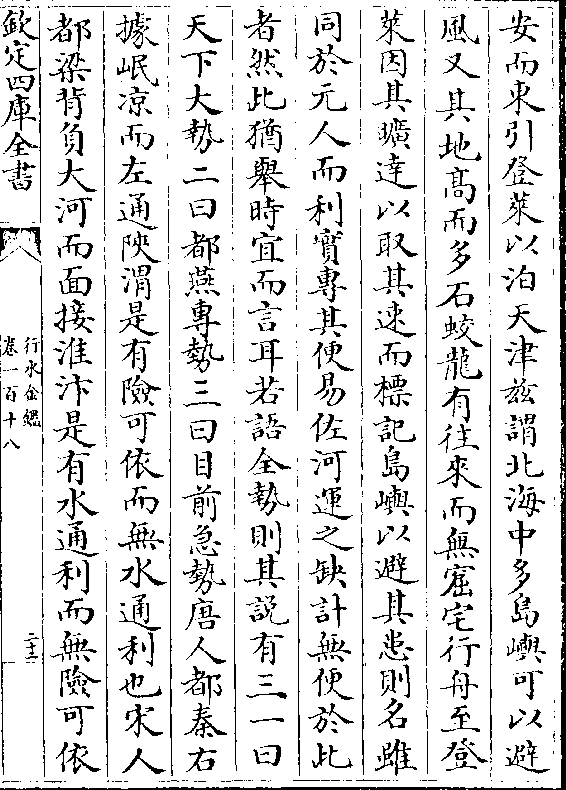 安而東引登萊以泊天津兹謂北海中多島嶼可以避
風又其地髙而多石蛟龍有徃來而無窟宅行舟至登
萊因其曠逹以取其速而標記島嶼以避其患則名雖
同於元人而利實專其便易佐河運之缺計無便於此
者然此猶舉時宜而言耳若語全勢則其説有三一曰
天下大勢二曰都燕專勢三曰目前急勢唐人都秦右
據岷凉而左通陜渭是有險可依而無水通利也宋人
都梁背負大河而面接淮汴是有水通利而無險可依
欽定四庫全書
行水金鑑
卷一百十八
二十二